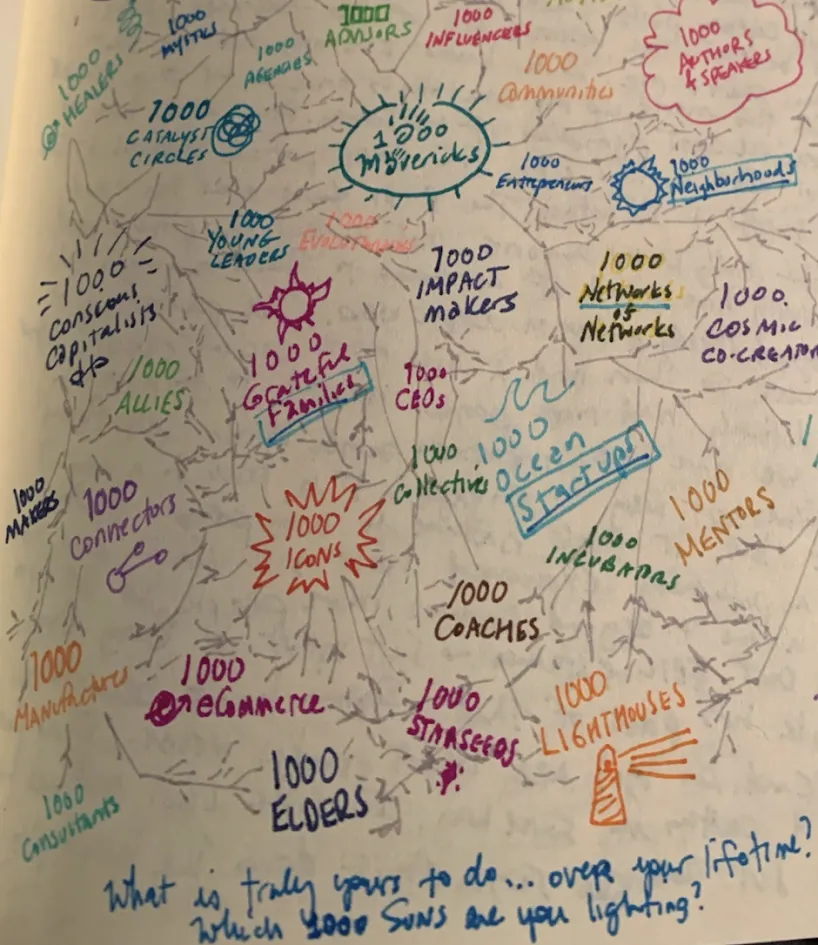 1000
HEALERS
1000
MYSTICS
1000
AGENCIES
1000
ADVISORS
1000
INFLUENCERS
1000
Communities
1000
AUTHORS
& SPEAKERS
1000
CATALYST
CIRCLES
1000
Mavericks
1000
Entrepreneurs
1000
Neighborhoods
1000
YOUNG
LEADERS
1000
1000
CONSCIOUS
Capitalists
1000
IMPACT
makers
1000
Networks
of
Networks
1000
COSMIC
CO-CREATOR
1000
ALLIES
1000
Grateful
Families
1000
CEOs
1000
Collectives
1000
Ocean
Startups
1000
MAKERS
1000
Connectors
1000
ICONS
1000
INCUBATORS
1000
MENTORS
1000
COACHES
1000
MANUFACTURERS
1000
eCommerce
1000
STARSEEDS
1000
LIGHTHOUSES
1000
ELDERS
1000
Consultants
What is truly yours to do... over your lifetime?
Which 1000 Suns are you lighting?